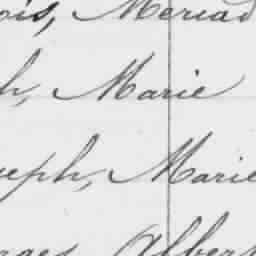 ois, Meriad
h, Marie
seph, Marie
rges Albert